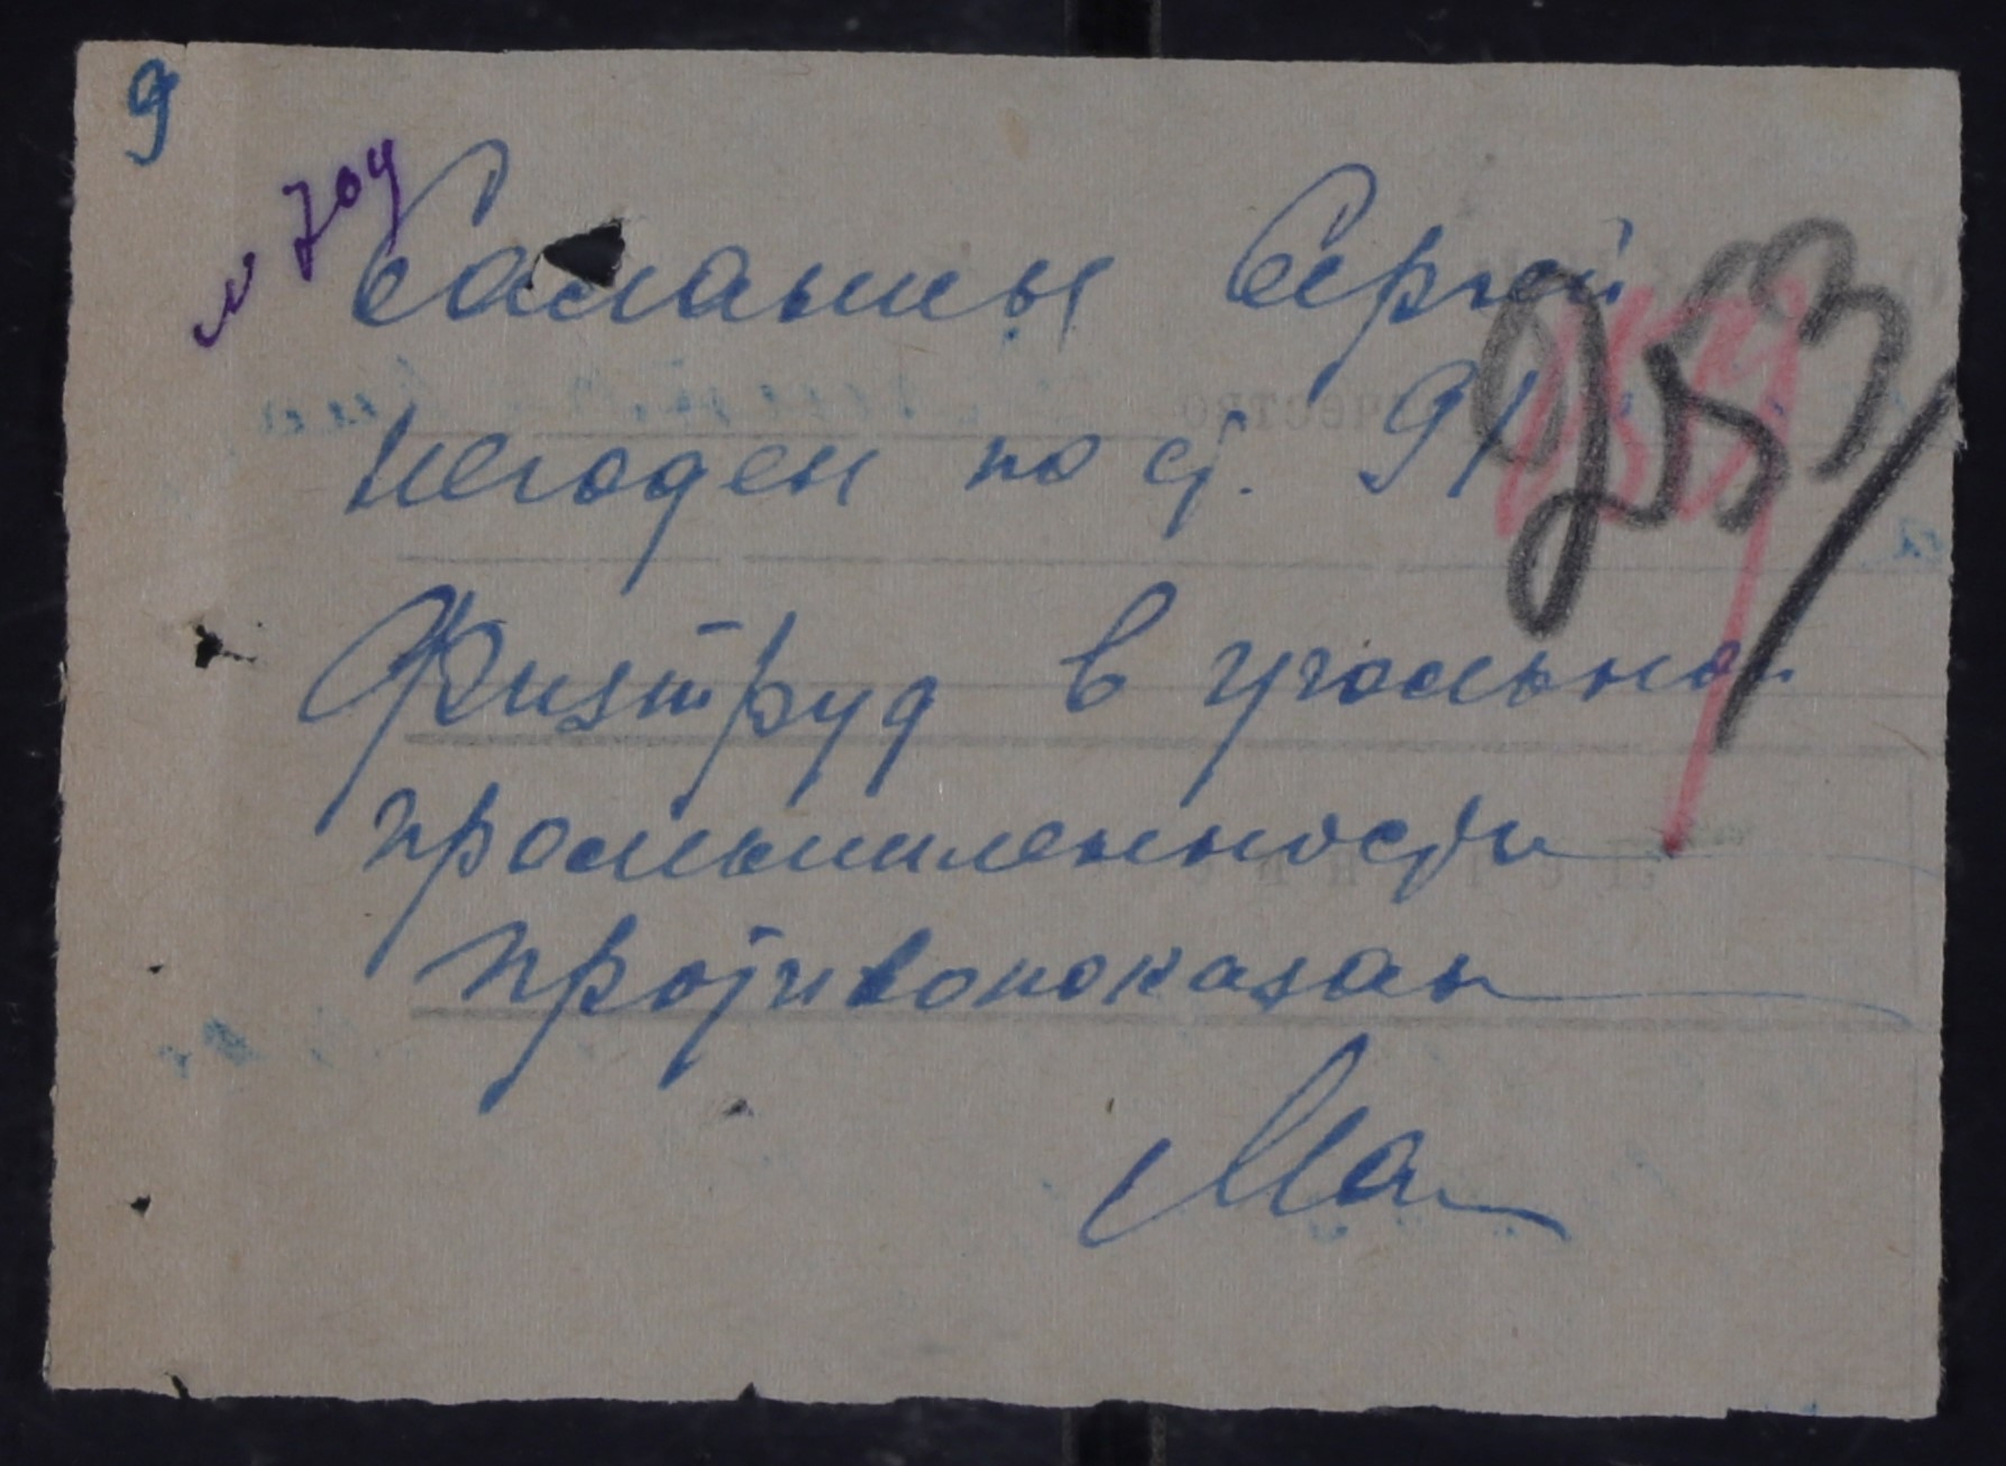 9
Саманин Сергей
негоден по ст. 91
Физтруд в угольной
промышленности
противопоказан